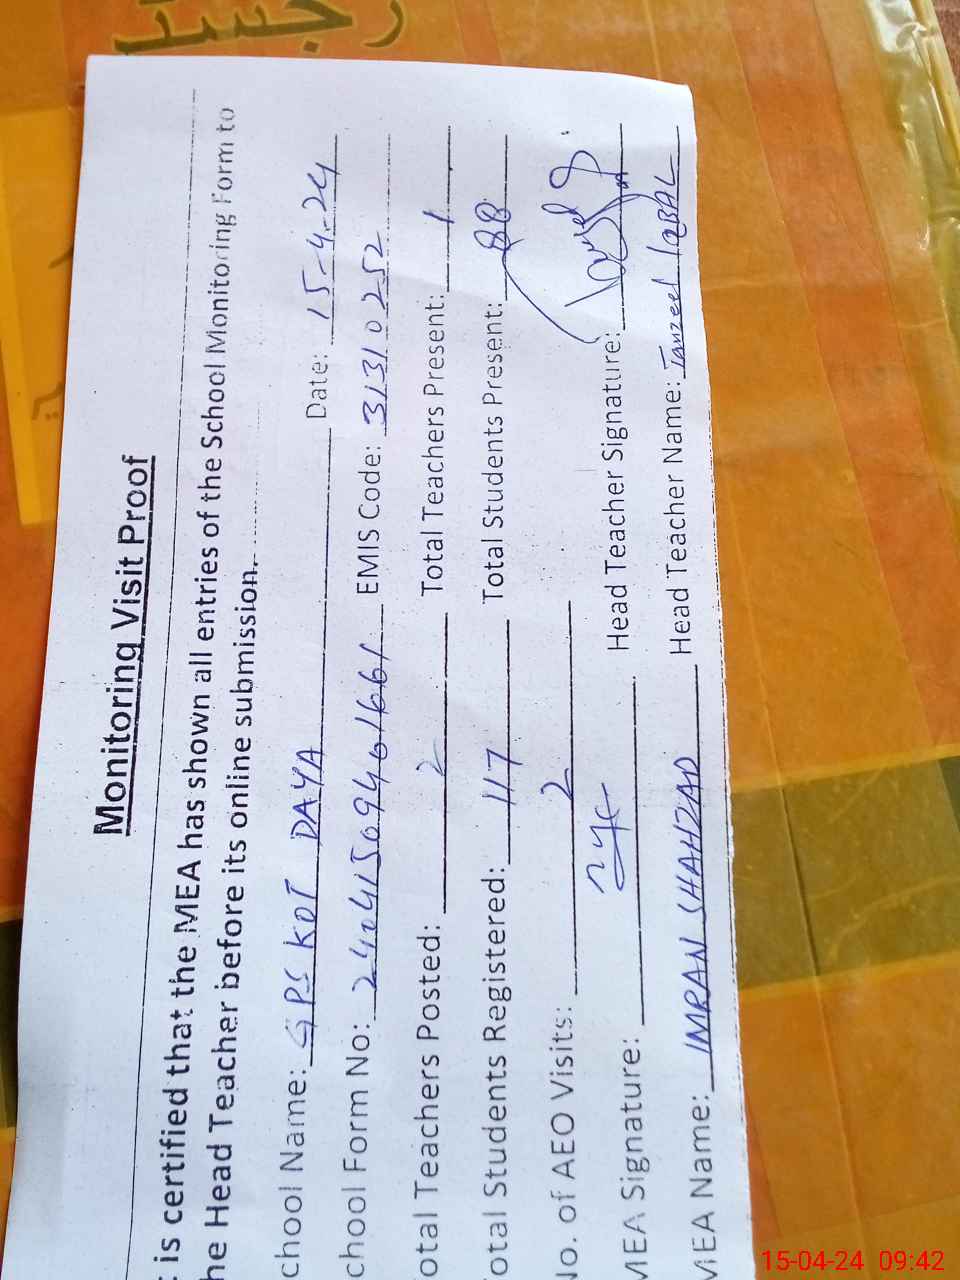 رجسٹر
Monitoring Visit Proof
is certified that the MEA has shown all entries of the School Monitoring Form to
he Head Teacher before its online submission.
chool Name: GPS KOT DAYA Date: 15-4-24
chool Form No: EMIS Code: 31310252
otal Teachers Posted: 2 Total Teachers Present: 1
otal Students Registered: 117 Total Students Present: 88
No. of AEO Visits: 2
MEA Signature: Head Teacher Signature:
MEA Name: IMRAN SHAHZAD Head Teacher Name: Tanzeel IQBAL
15-04-24 09:42